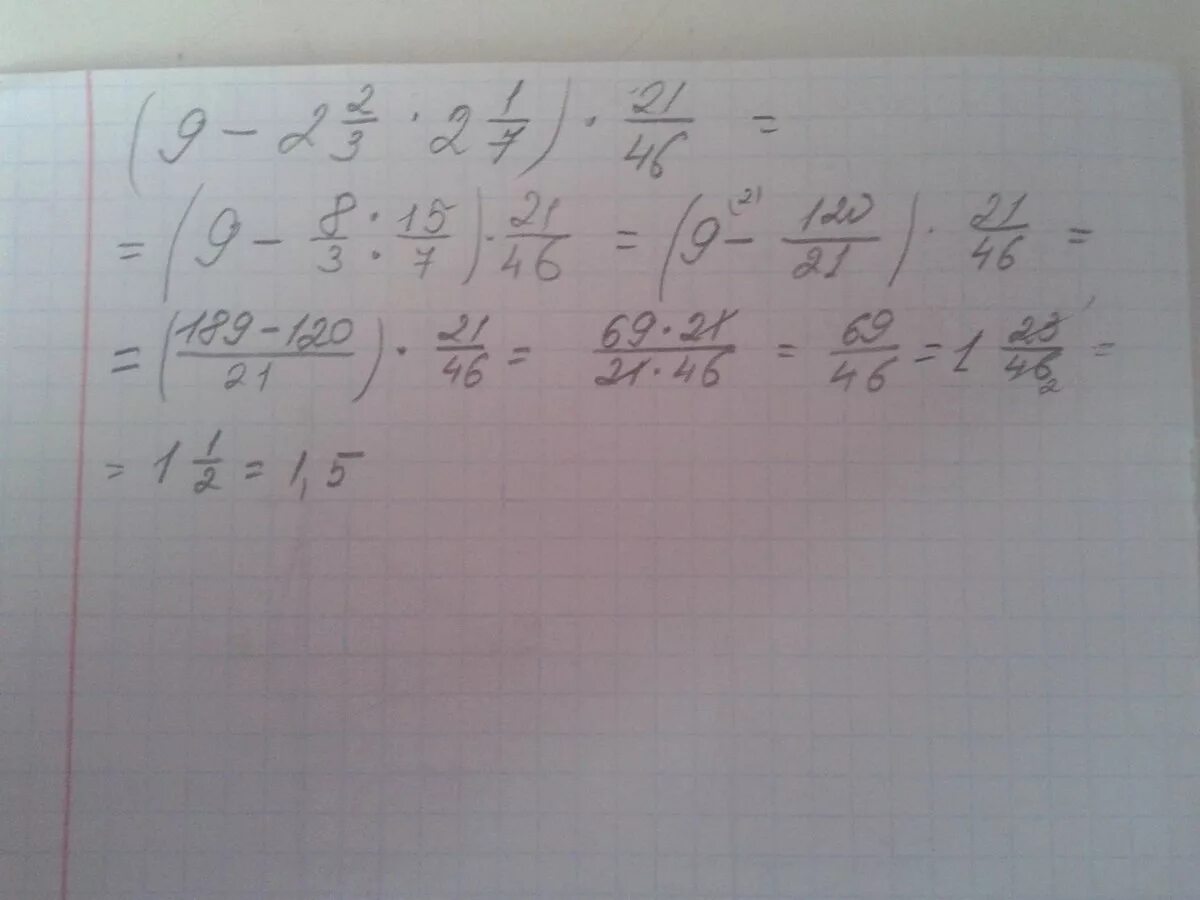 (9 − 2 2/3 · 2 1/7) · 21/46 =
= (9 − 8/3 · 15/7) · 21/46 = (9⁽²¹⁾ − 120/21) · 21/46 =
= (189 − 120/21) · 21/46 = 69 · 21/21 · 46 = 69/46 = 1 23¹/46₂ =
= 1 1/2 = 1,5